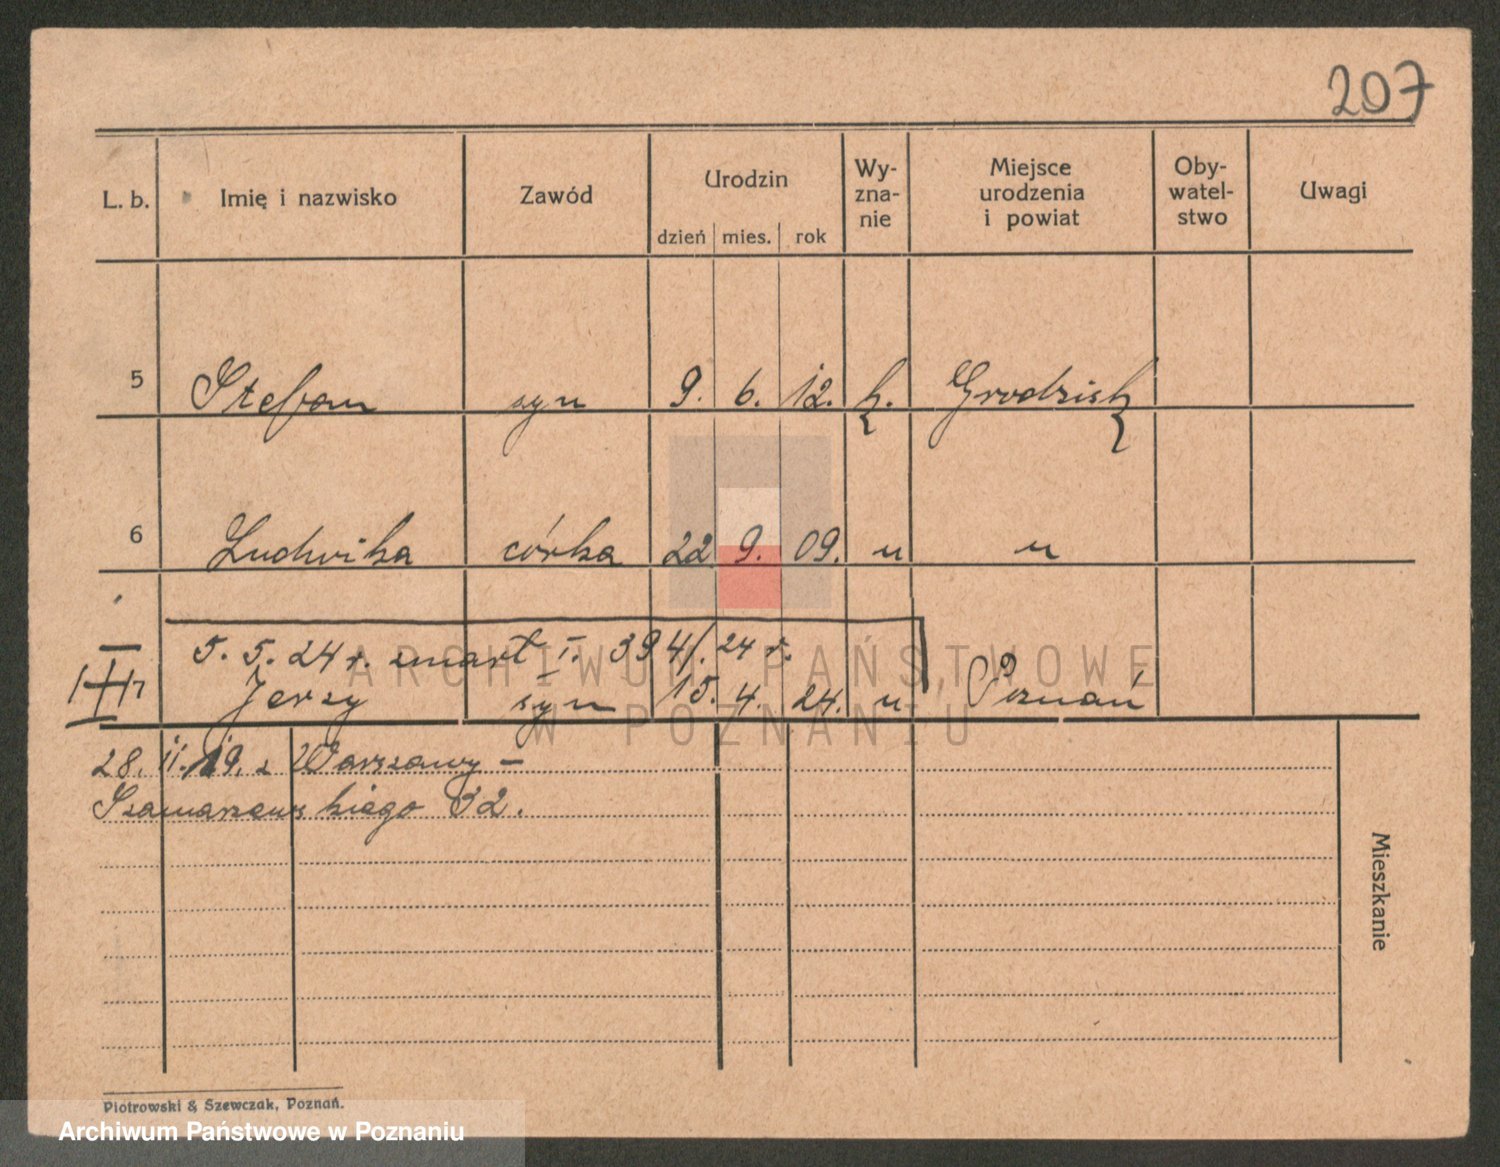 207
L. b. Imię i nazwisko Zawód Urodzin Wy-zna-nie Miejsce urodzenia i powiat Oby-watel-stwo Uwagi
dzień mies. rok
5 Stefan syn 9. 6. 12. k. Grodzisk
6 Ludwika córka 22 9. 09. " "
5. 5. 24 r. zmarł I. 394/. 24 r.
7 Jerzy syn 15. 4. 24. " Poznań
ARCHIWUM PAŃSTWOWE
W POZNANIU
28. 11. 19. z Warszawy –
Szamarzewskiego 32.
Mieszkanie
Piotrowski & Szewczak, Poznań.
Archiwum Państwowe w Poznaniu